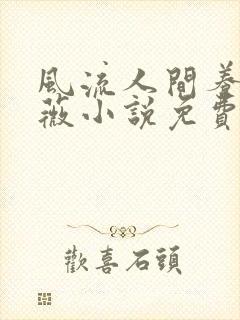 風流人間春
薇小說免費
歡喜石頭